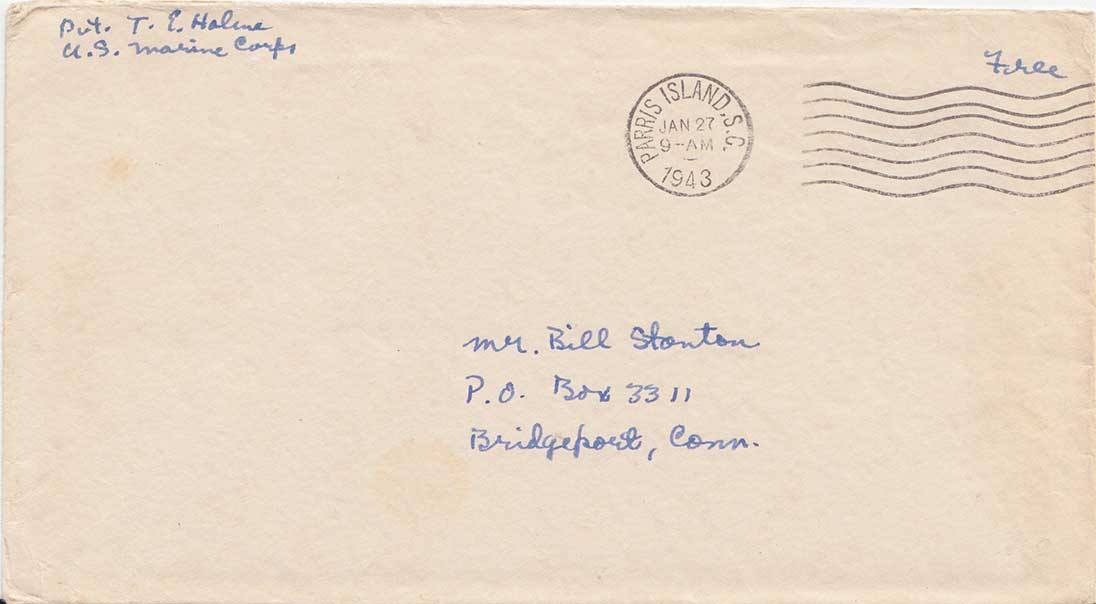 Pvt. T. E. Holme
U.S. Marine Corps
Free
PARRIS ISLAND, S.C.
JAN 27
9-AM
1943
Mr. Bill Stanton
P.O. Box 3311
Bridgeport, Conn.